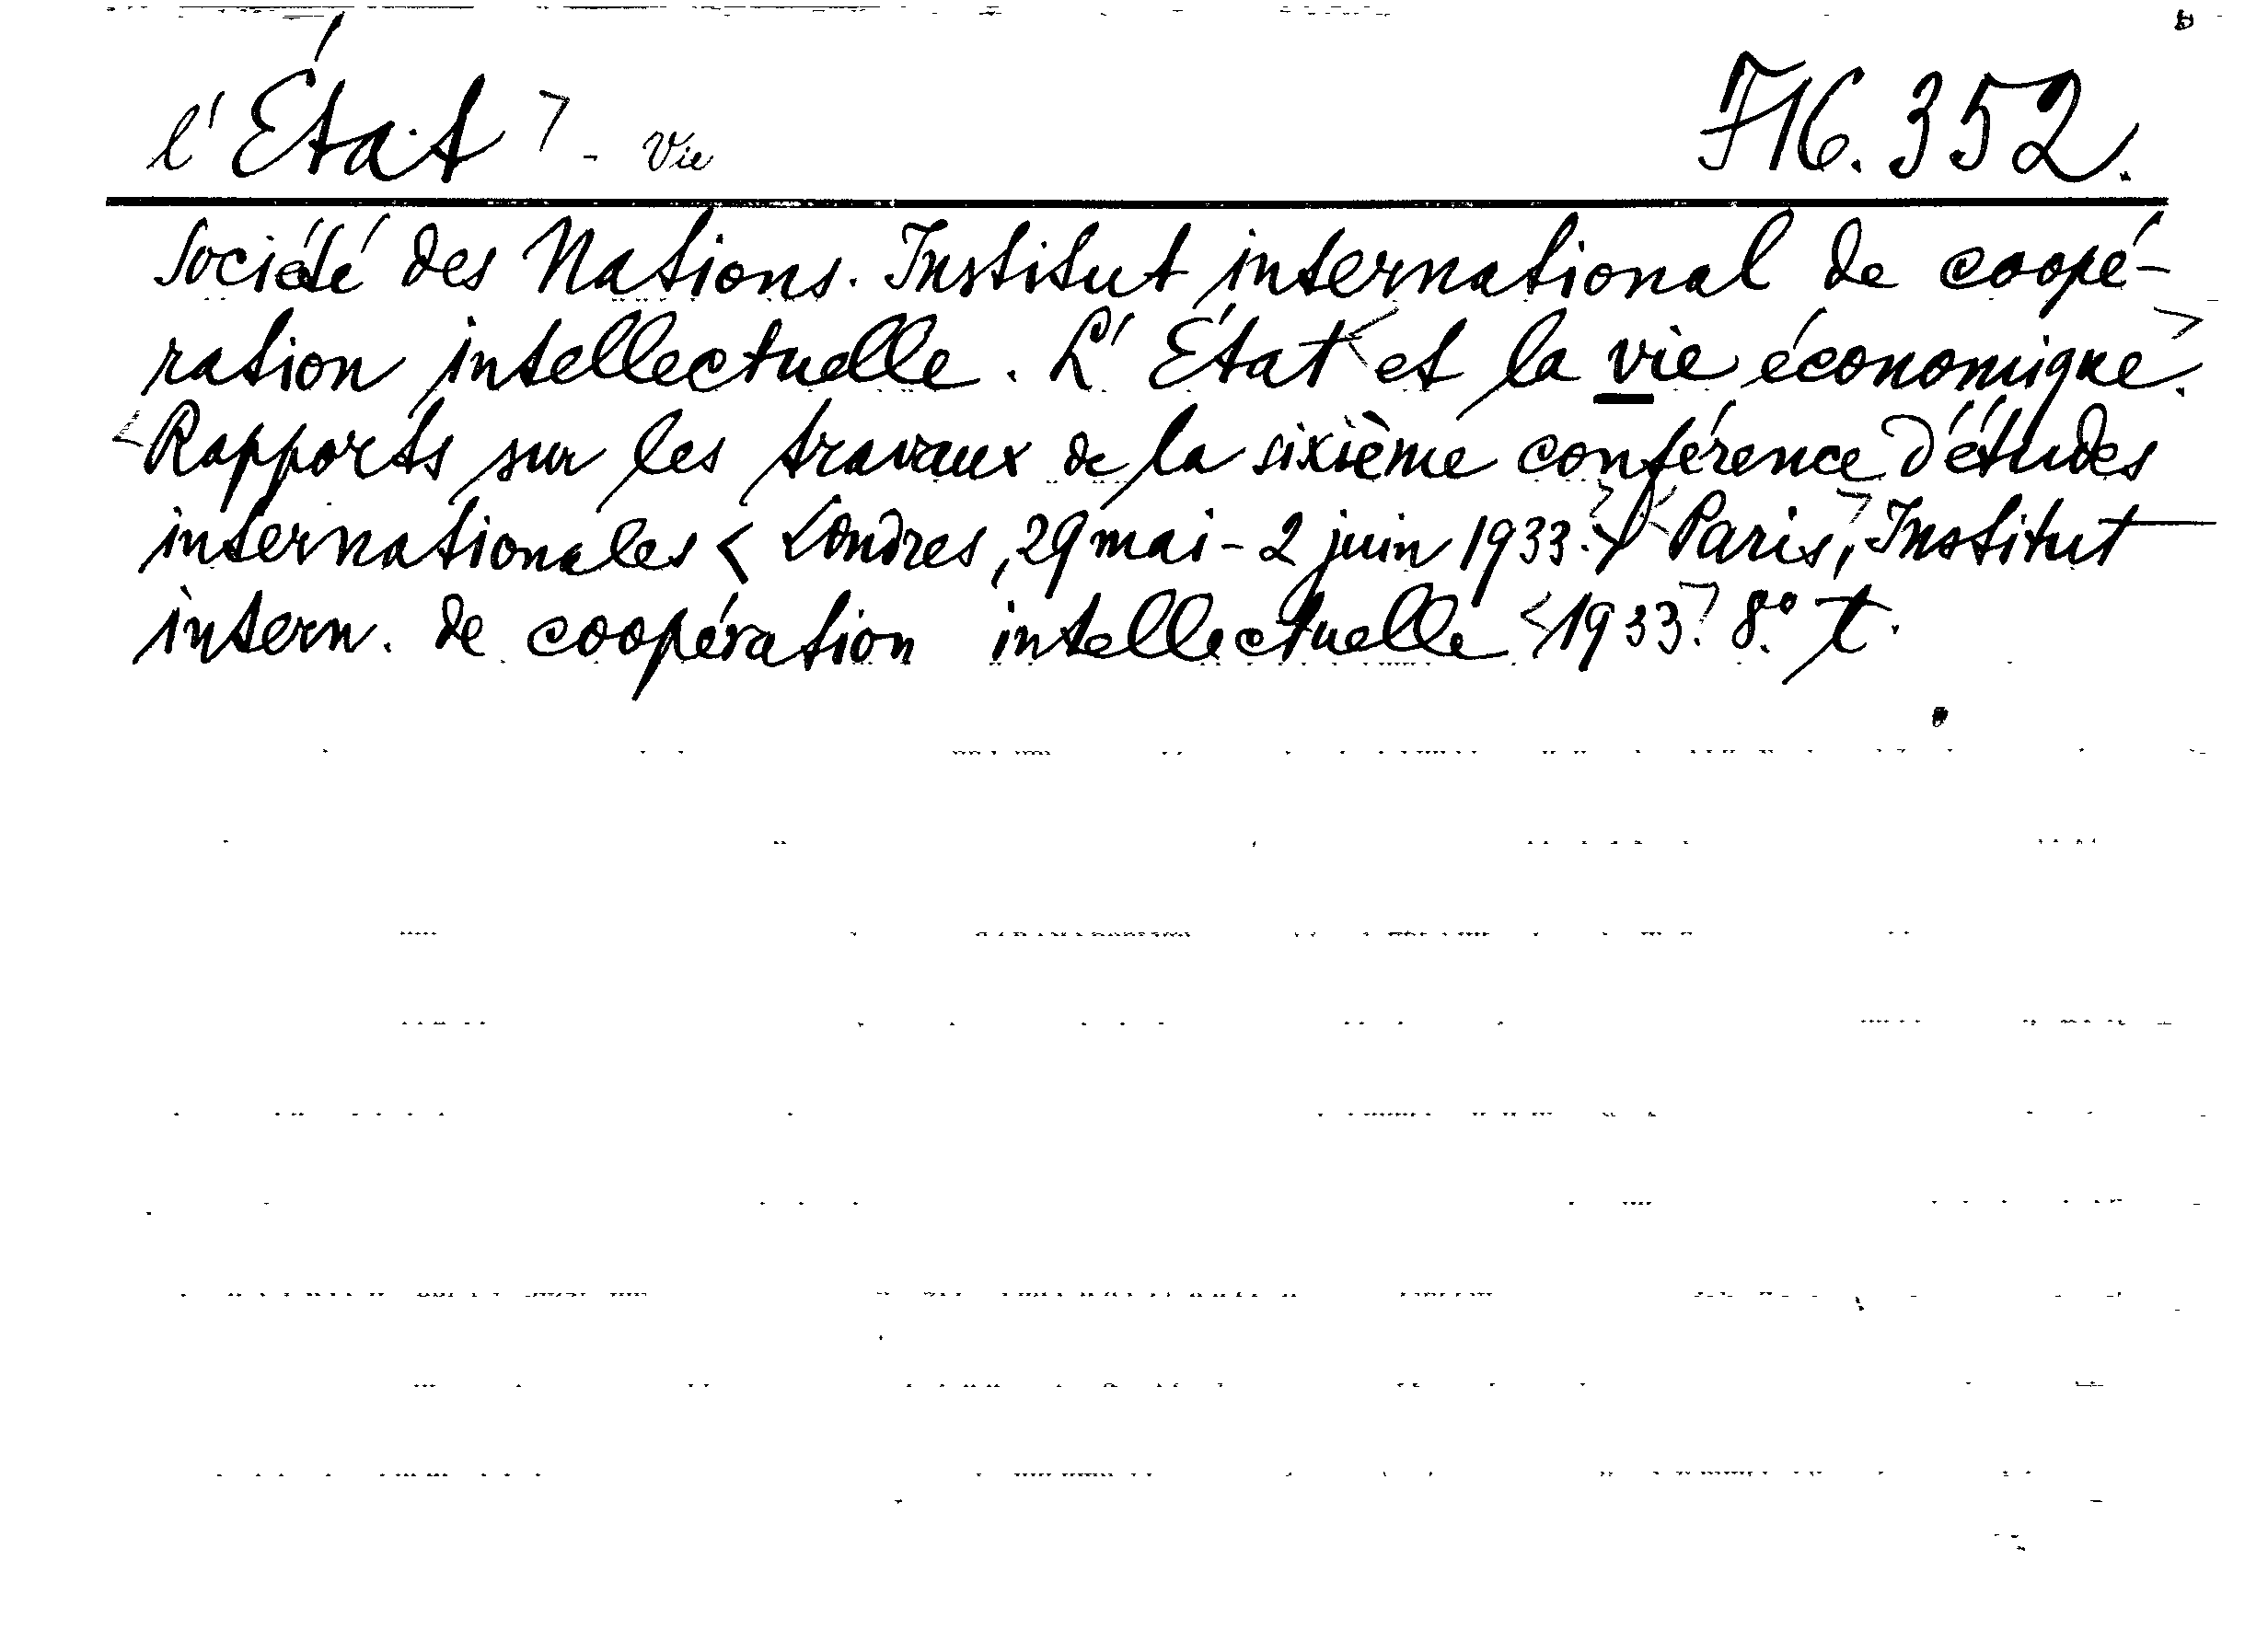 l'État - Vie 716.352.
Société des Nations. Institut international de coopé-
ration intellectuelle. L'État et la vie économique.
Rapports sur les travaux de la sixième conférence d'études
internationales < Londres, 29 mai - 2 juin 1933. > Paris, Institut
intern. de coopération intellectuelle <1933> 8.° t.